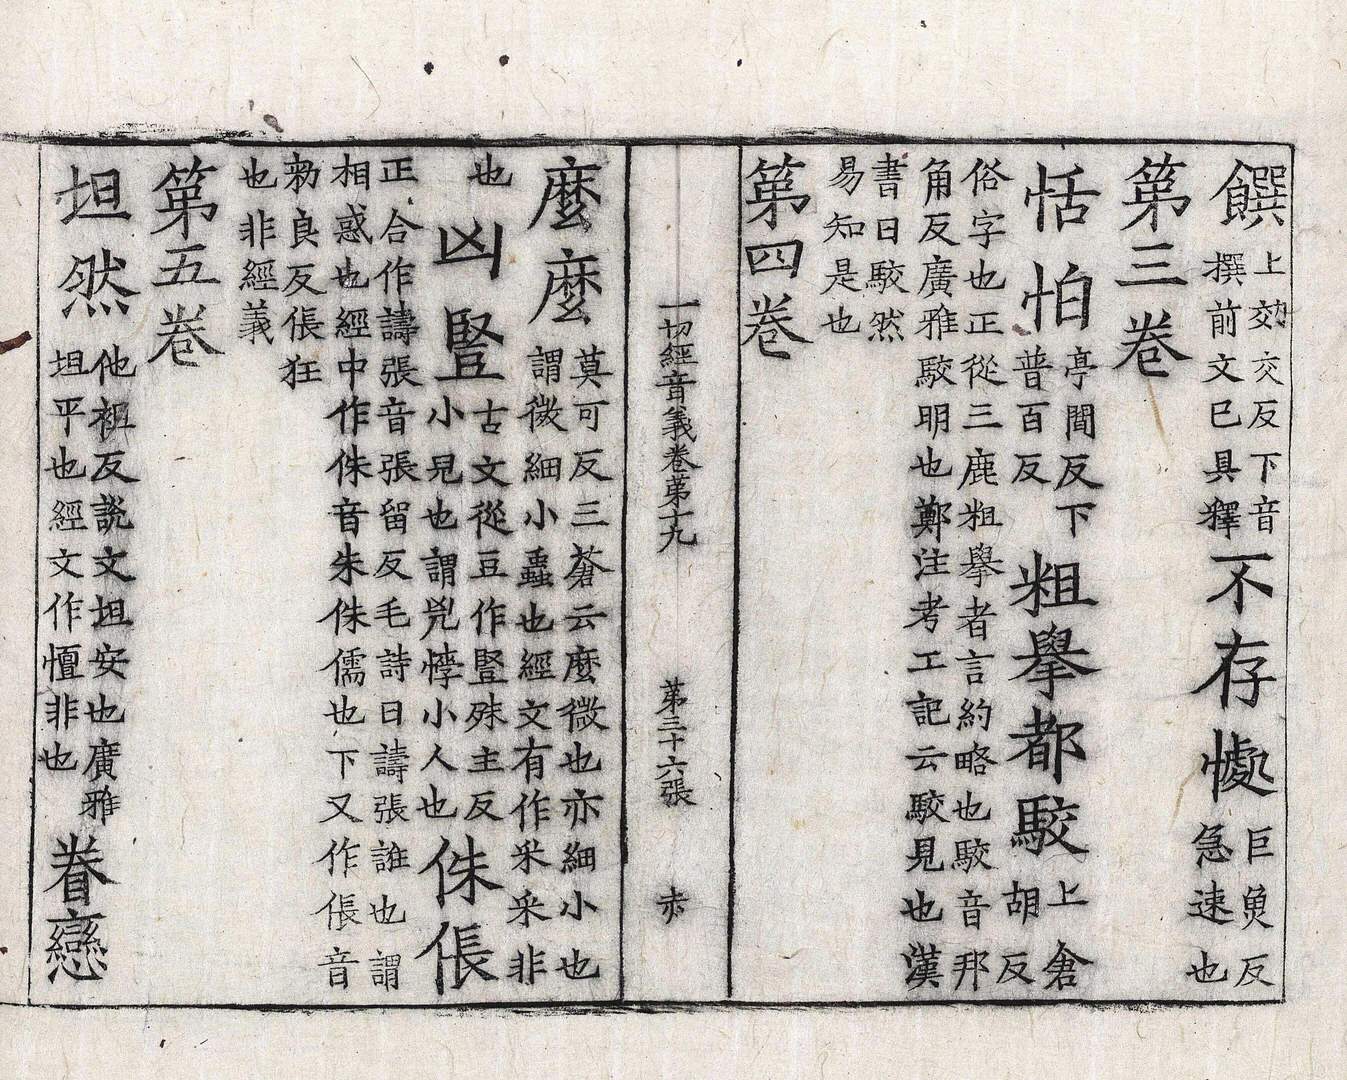 饌上効交反下音
撰前文已具釋不存懅巨魚反
急速也
第三卷
恬怕亭閻反下
普百反粗擧都駮上倉
胡反
俗字也正從三鹿粗擧者言約略也駮音邦
角反廣雅駮明也鄭注考工記云駮見也漢
書曰駮然
易知是也
第四卷
一切經音義卷第十九 第三十六張
麼麼莫可反三蒼云麼微也亦細小也
謂微細小蟲也經文有作釆釆非
也凶豎古文從豆作豎殊主反
小皃也謂兇悖小人也侏倀
正合作譸張音張留反毛詩曰譸張誰也謂
相惑也經中作侏音朱侏儒也下又作倀音
勑良反倀狂
也非經義
第五卷
坦然他袒反說文坦安也廣雅
坦平也經文作憻非也眷戀